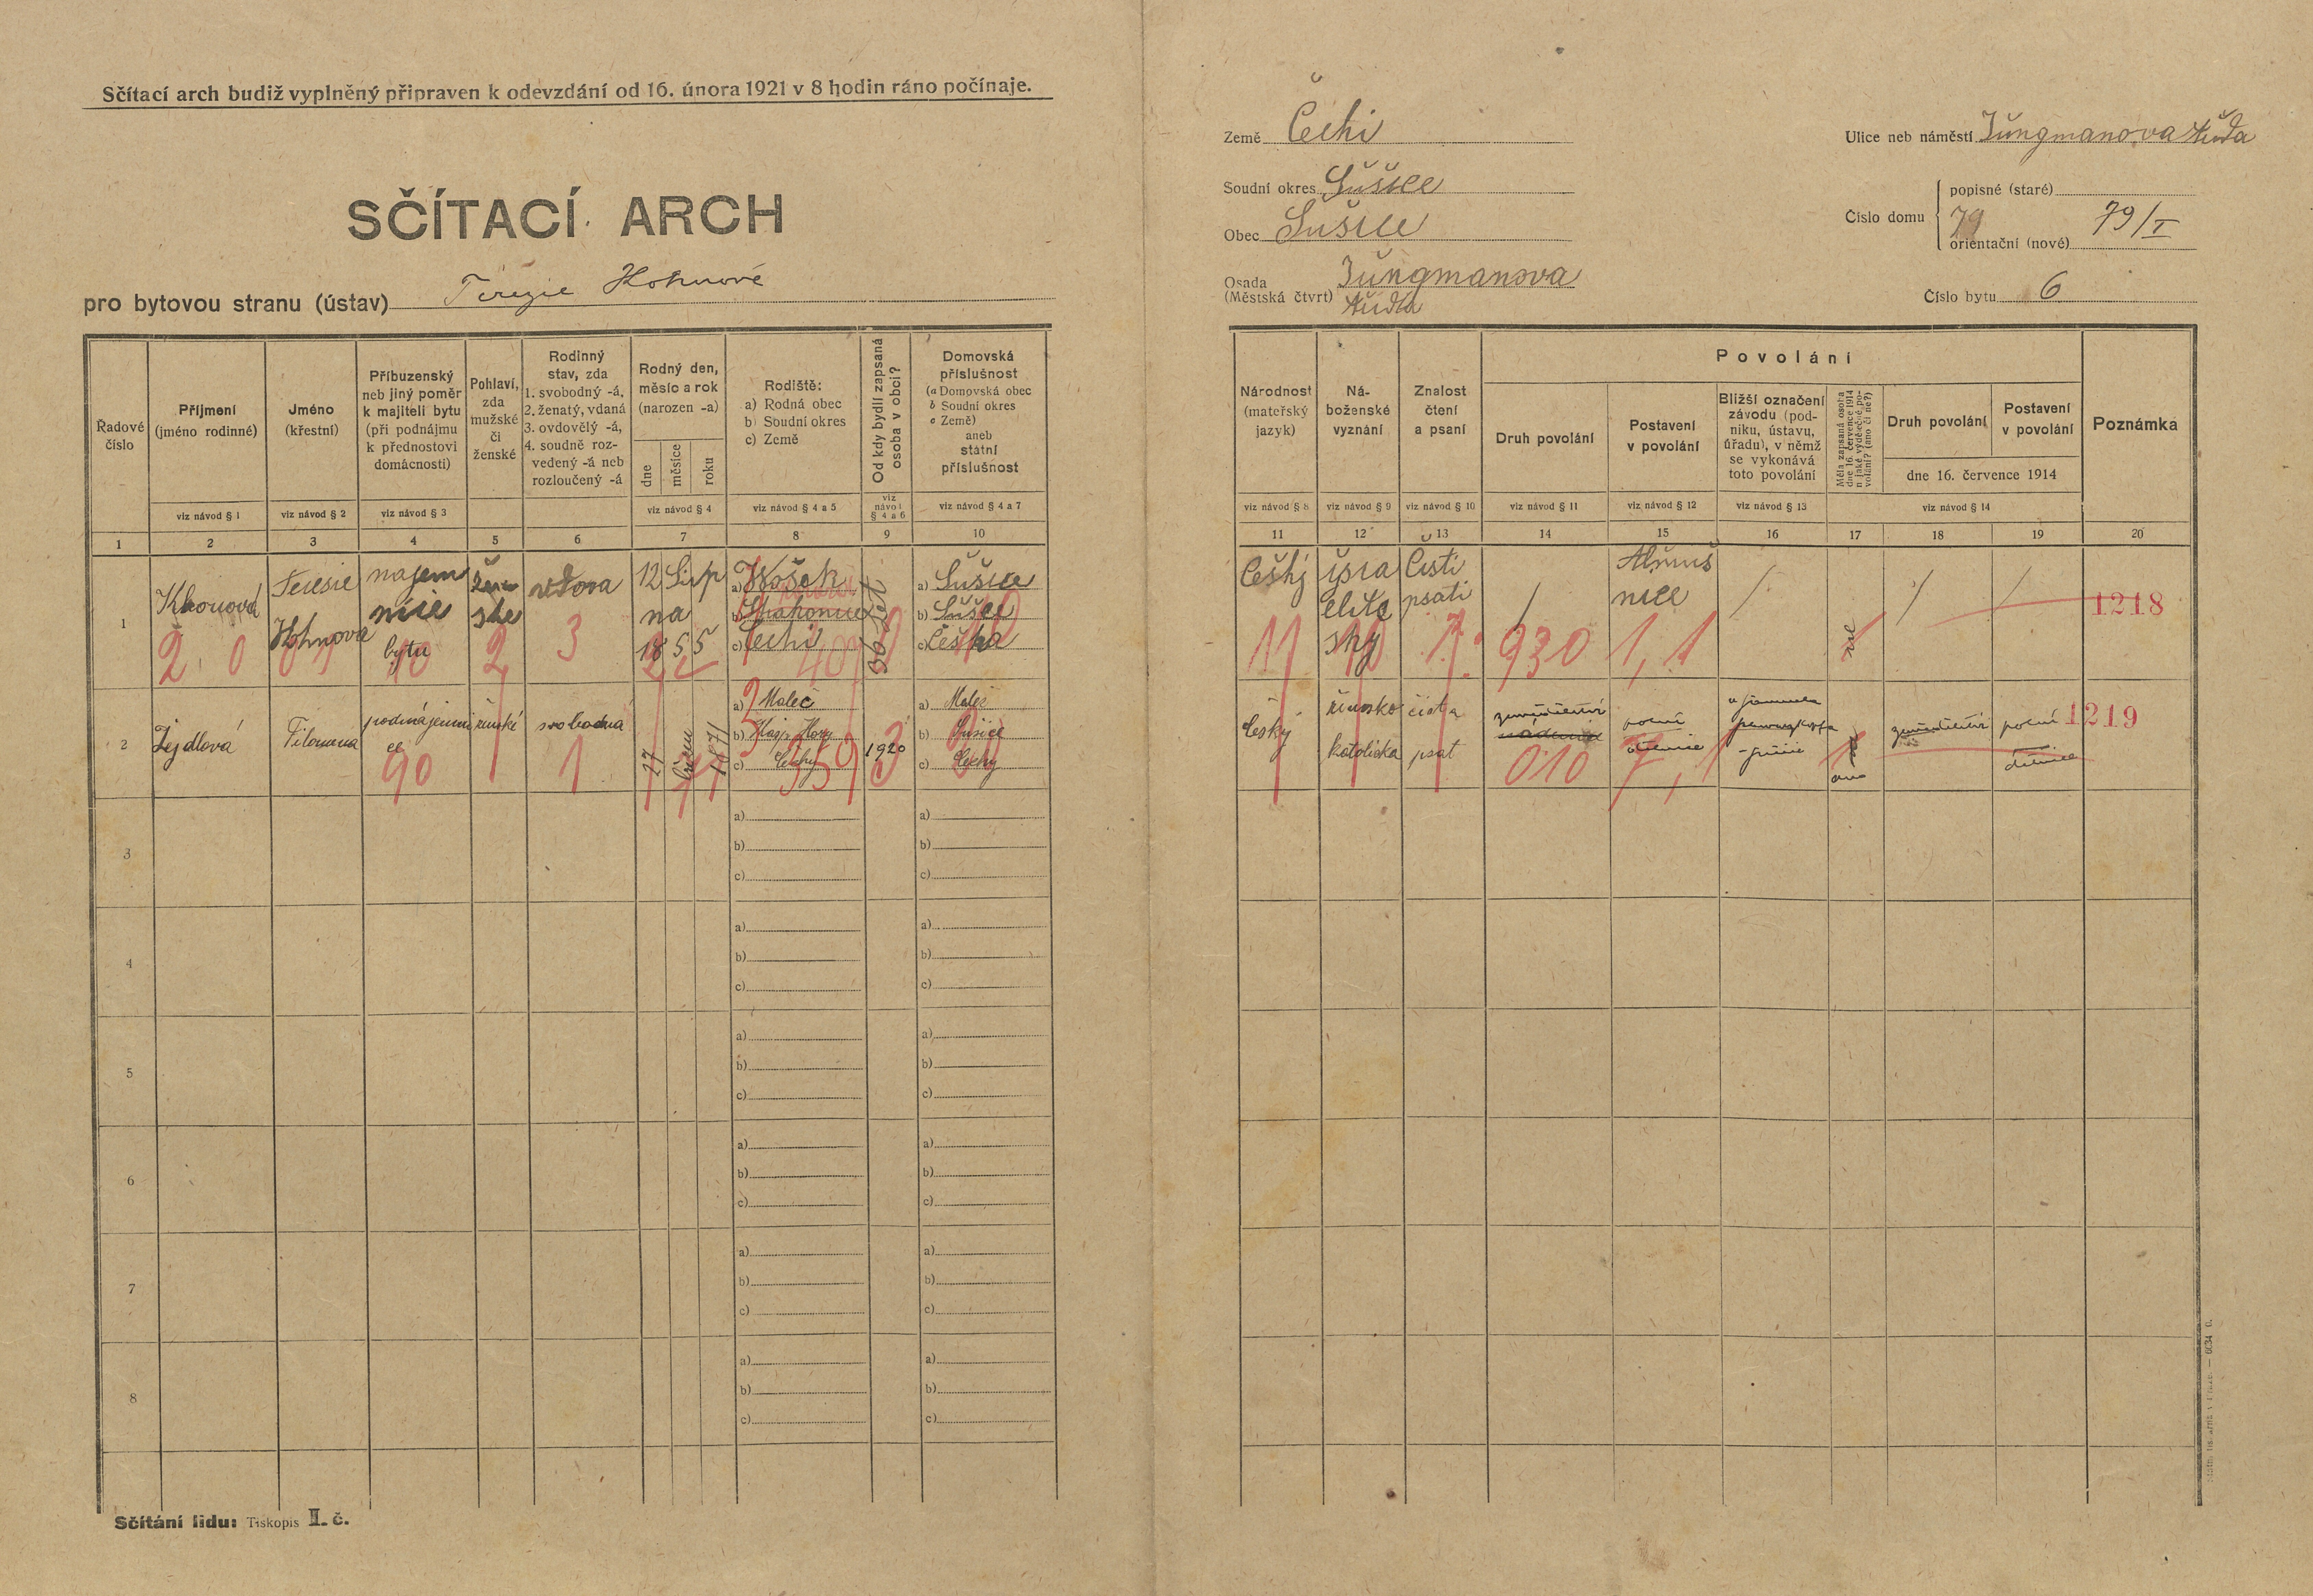 Sčítací arch budiž vyplněný připraven k odevzdání od 16. února 1921 v 8 hodin ráno počínaje.
SČÍTACÍ ARCH
pro bytovou stranu (ústav) Terezie Kohnové
Země Čechi
Soudní okres Sušice
Obec Sušice
Osada
(Městská čtvrt) Jungmanova
třída
Ulice neb náměstí Jungmanova třída
Číslo domu
popisné (staré)
79
orientační (nové) 79/I
Číslo bytu 6
Řadové
číslo
Příjmení
(jméno rodinné)
Jméno
(křestní)
Příbuzenský
neb jiný poměr
k majiteli bytu
(při podnájmu
k přednostovi
domácnosti)
Pohlaví,
zda
mužské
či
ženské
Rodinný
stav, zda
1. svobodný -á,
2. ženatý, vdaná
3. ovdovělý -á,
4. soudně roz-
vedený -á neb
rozloučený -á
Rodný den,
měsíc a rok
(narozen -a)
dne
měsíce
roku
Rodiště:
a) Rodná obec
b) Soudní okres
c) Země
Od kdy bydlí zapsaná
osoba v obci?
Domovská
příslušnost
(a Domovská obec
b Soudní okres
c Země)
aneb
státní
příslušnost
viz návod § 1
viz návod § 2
viz návod § 3
viz návod § 4
viz návod § 4 a 5
viz
návod
§ 4 a 6
viz návod § 4 a 7
1 2 3 4 5 6 7 8 9 10
Národnost
(mateřský
jazyk)
Ná-
boženské
vyznání
Znalost
čtení
a psaní
Povolání
Druh povolání
Postavení
v povolání
Bližší označení
závodu (pod-
niku, ústavu,
úřadu), v němž
se vykonává
toto povolání
Měla zapsaná osoba
dne 16. července 1914
nějaké výdělečné po-
volání? (ano či ne?)
Druh povolání
Postavení
v povolání
dne 16. července 1914
Poznámka
viz návod § 8
viz návod § 9
viz návod § 10
viz návod § 11
viz návod § 12
viz návod § 13
viz návod § 14
11 12 13 14 15 16 17 18 19 20
1
Teresie
Kohnova
najem
nice
bytu
žen
ske
vdova
12 Srp
na
1855
a)
b)
c) Čechi
a) Sušice
b) Sušice
c) Češka
Češký
isra
elits
ský
Čisti
psati
/
Almuž
nice
/
ne
/
/
1218
2 0 10 2 3
11 10 1 930 1,1
2
Zejdlová
Filomena
podnájemni
ce
ženské
svobodná
27
1871
a) Maleč
b) Kašp. Hory
c) Čechy
1920
a) Maleč
b) Sušice
c) Čechy
česky
římsko
katolická
číst a
psat
zemědělství
polní
dělnice
ano
zemědělství
polní
dělnice
1219
90 1 559 3
010 7,1
3
a)
b)
c)
a)
b)
c)
4
a)
b)
c)
a)
b)
c)
5
a)
b)
c)
a)
b)
c)
6
a)
b)
c)
a)
b)
c)
7
a)
b)
c)
a)
b)
c)
8
a)
b)
c)
a)
b)
c)
Sčítání lidu: Tiskopis II. č.